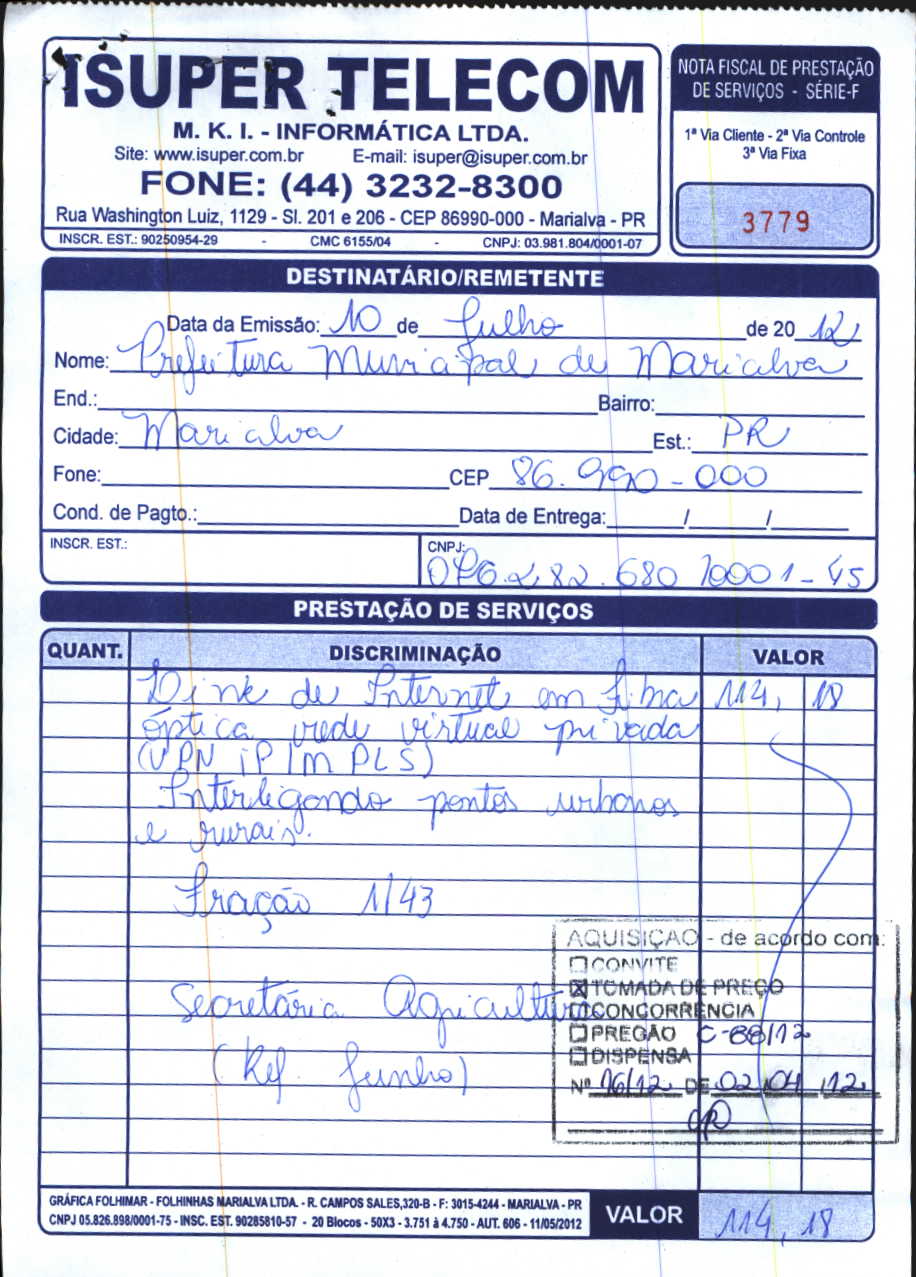 ISUPER TELECOM
M. K. I. - INFORMÁTICA LTDA.
Site: www.isuper.com.br E-mail: isuper@isuper.com.br
FONE: (44) 3232-8300
Rua Washington Luiz, 1129 - Sl. 201 e 206 - CEP 86990-000 - Marialva - PR
INSCR. EST.: 90250954-29 - CMC 6155/04 - CNPJ: 03.981.804/0001-07
NOTA FISCAL DE PRESTAÇÃO
DE SERVIÇOS - SÉRIE-F
1ª Via Cliente - 2ª Via Controle
3ª Via Fixa
3779
DESTINATÁRIO/REMETENTE
Data da Emissão: 10 de Julho de 20 12
Nome: Prefeitura Municipal de Marialva
End.: Bairro:
Cidade: Marialva Est.: PR
Fone: CEP 86.990-000
Cond. de Pagto.: Data de Entrega: / /
INSCR. EST.:
CNPJ: 076.282.680/0001-45
PRESTAÇÃO DE SERVIÇOS
QUANT. DISCRIMINAÇÃO VALOR
Link de Internet em fibra 114, 18
óptica rede virtual privada
(VPN IP/MPLS)
Interligando pontos urbanos
e rurais.
Fração 1/43
Secretária Agricultura
(Ref. Junho)
AQUISIÇÃO - de acordo com:
☐ CONVITE
☒ TOMADA DE PREÇO
☐ CONCORRÊNCIA
☐ PREGÃO C-88/12
☐ DISPENSA
Nº 16/12 DE 02/04/12
GRÁFICA FOLHIMAR - FOLHINHAS MARIALVA LTDA. - R. CAMPOS SALES,320-B - F: 3015-4244 - MARIALVA - PR
CNPJ 05.826.898/0001-75 - INSC. EST. 90285810-57 - 20 Blocos - 50X3 - 3.751 à 4.750 - AUT. 606 - 11/05/2012
VALOR 114, 18